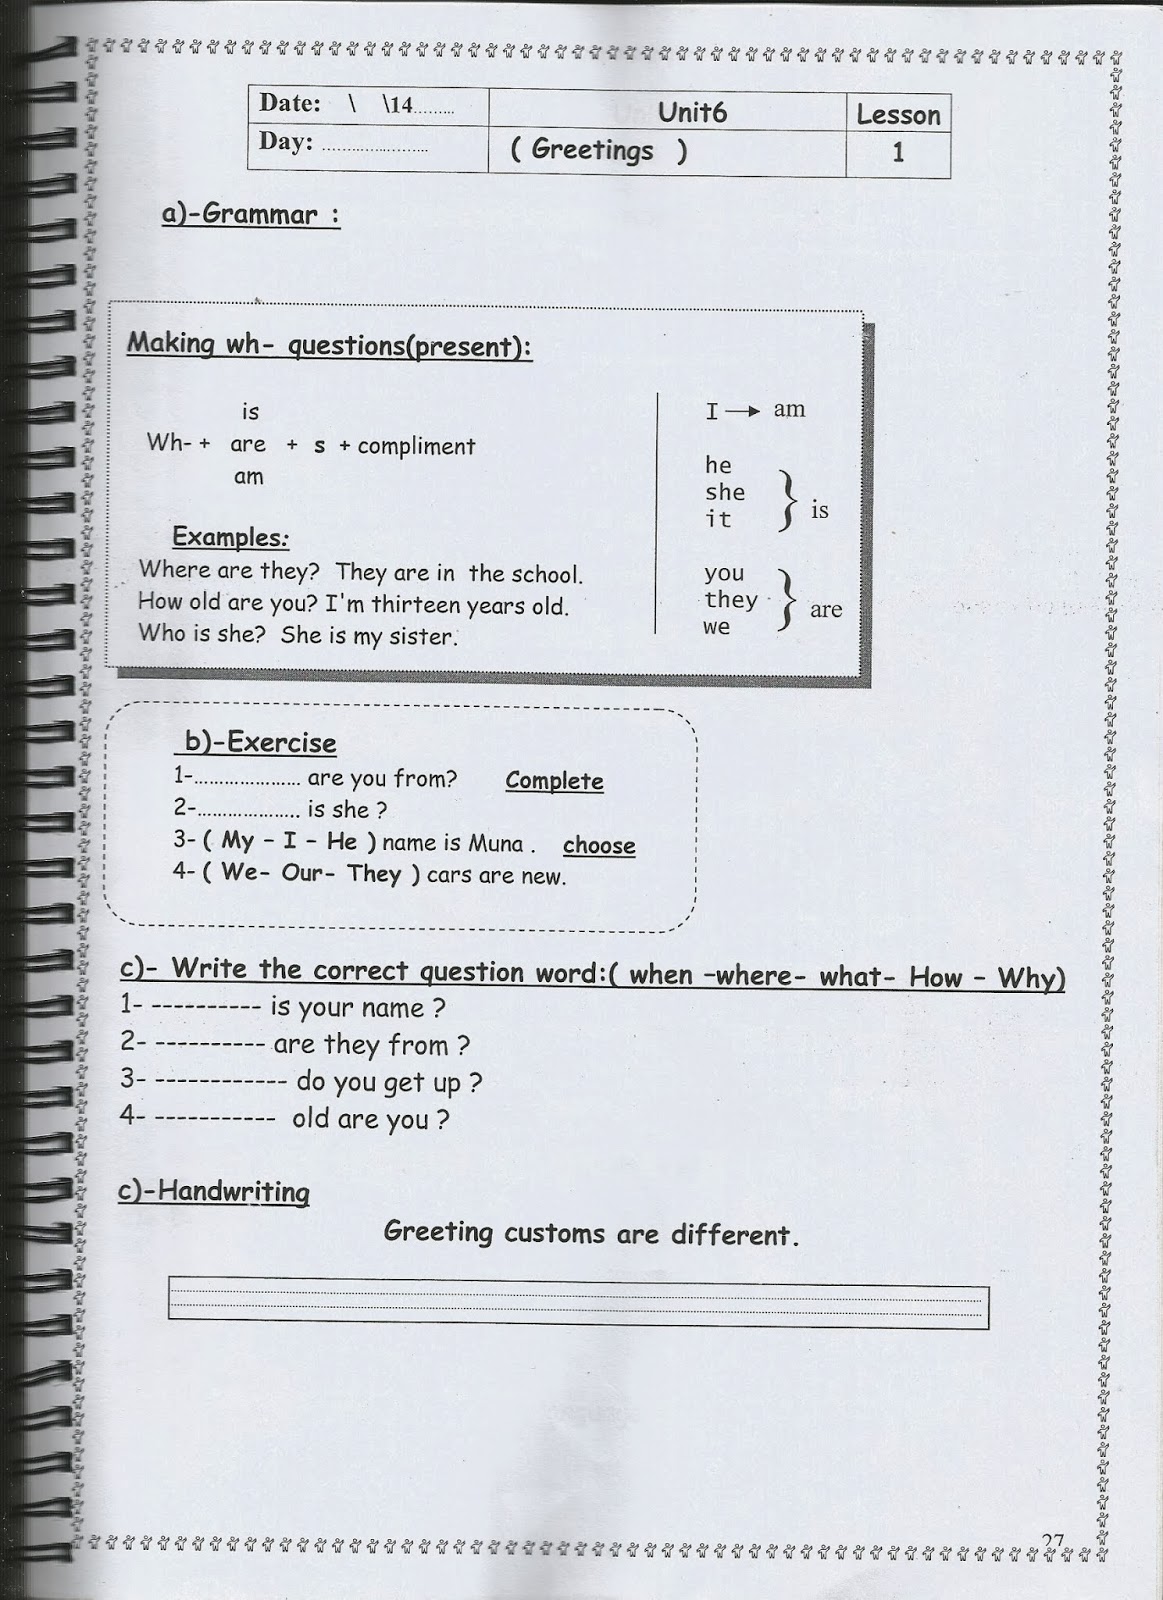 Date: \ \14.........
Unit6
Lesson
Day: ......................
( Greetings )
1
a)-Grammar :
Making wh- questions(present):
is
Wh- + are + s + compliment
am
I → am
he
she
it
} is
you
they
we
} are
Examples:
Where are they? They are in the school.
How old are you? I'm thirteen years old.
Who is she? She is my sister.
b)-Exercise
1-.................... are you from? Complete
2-................... is she ?
3- ( My - I - He ) name is Muna . choose
4- ( We- Our- They ) cars are new.
c)- Write the correct question word:( when -where- what- How - Why)
1- ---------- is your name ?
2- ---------- are they from ?
3- ------------ do you get up ?
4- ----------- old are you ?
c)-Handwriting
Greeting customs are different.
27